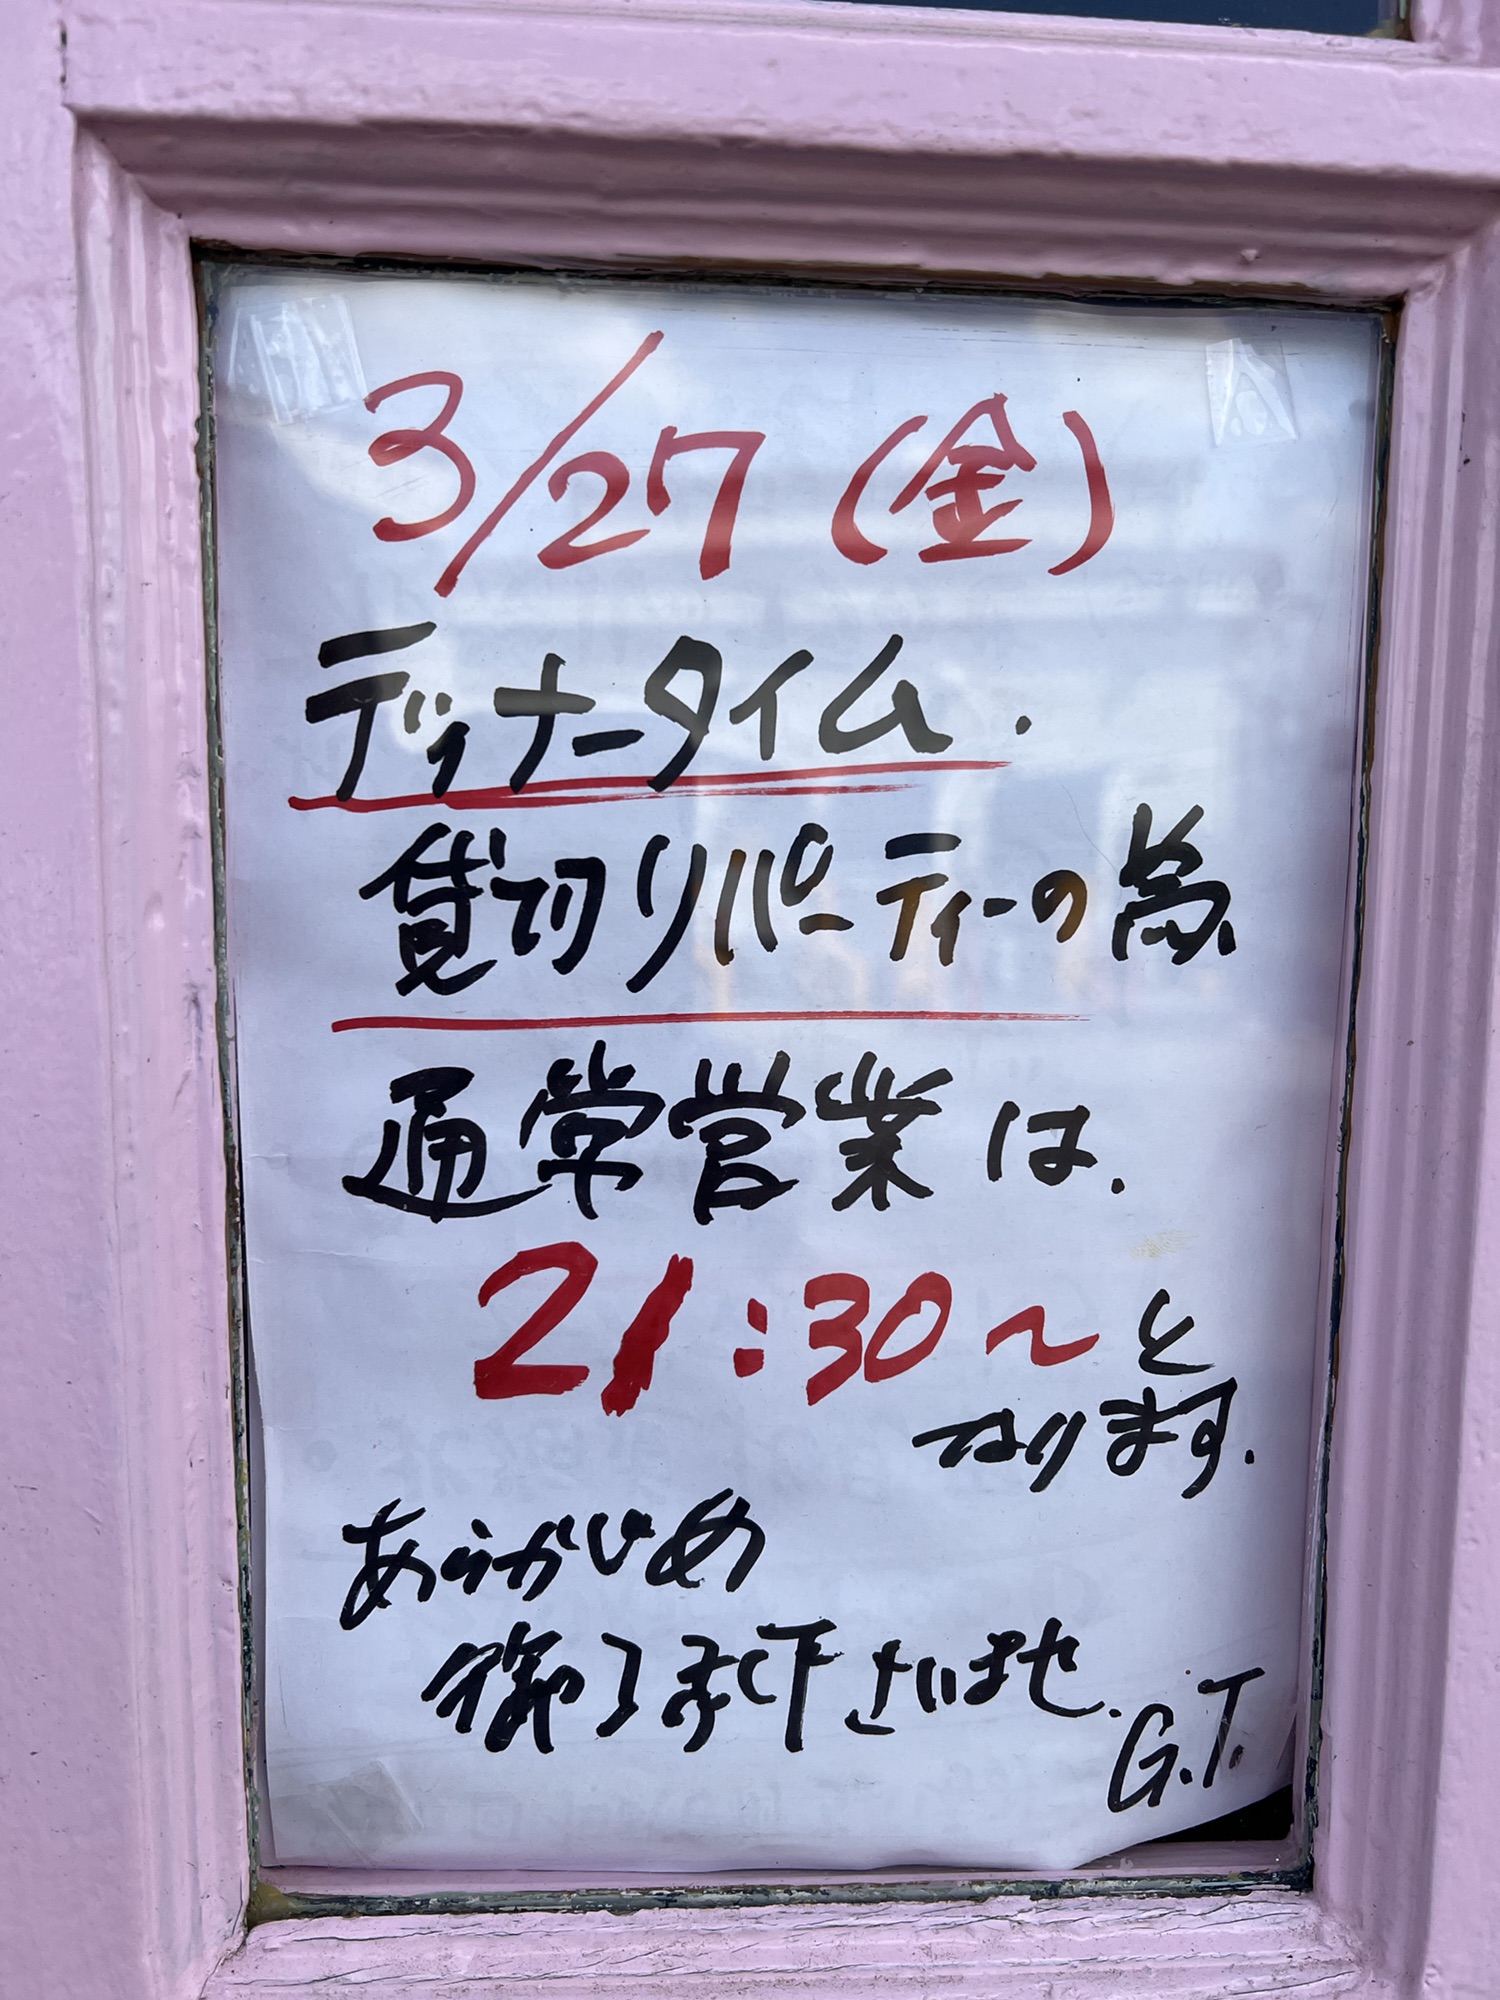 3/27(金)
ディナータイム.
貸切りパーティーの為
通常営業は.
21:30〜と
なります.
あらかじめ
御了承下さいませ.
G.T.